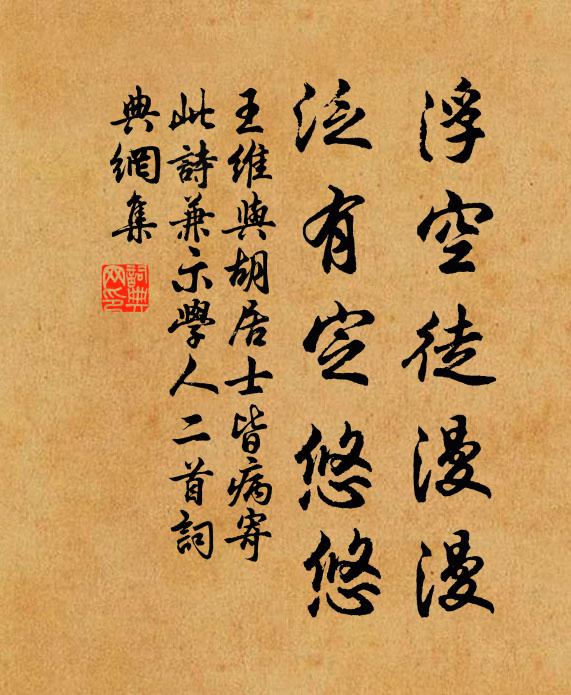 浮空徒漫漫
泛有定悠悠
王維與胡居士皆病寄
此詩兼示學人二首詞
典網集
詞典網印